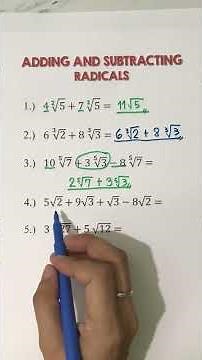 ADDING AND SUBTRACTING
RADICALS
1.) 4∛5 + 7∛5 = 11√5
2.) 6∛2 + 8∛3 = 6∛2 + 8∛3
3.) 10∜7 + 3∜3 - 8∜7 =
2∜7 + 3∜3
4.) 5√2 + 9√3 + √3 - 8√2 =
5.) 3 27 + 5√12 =